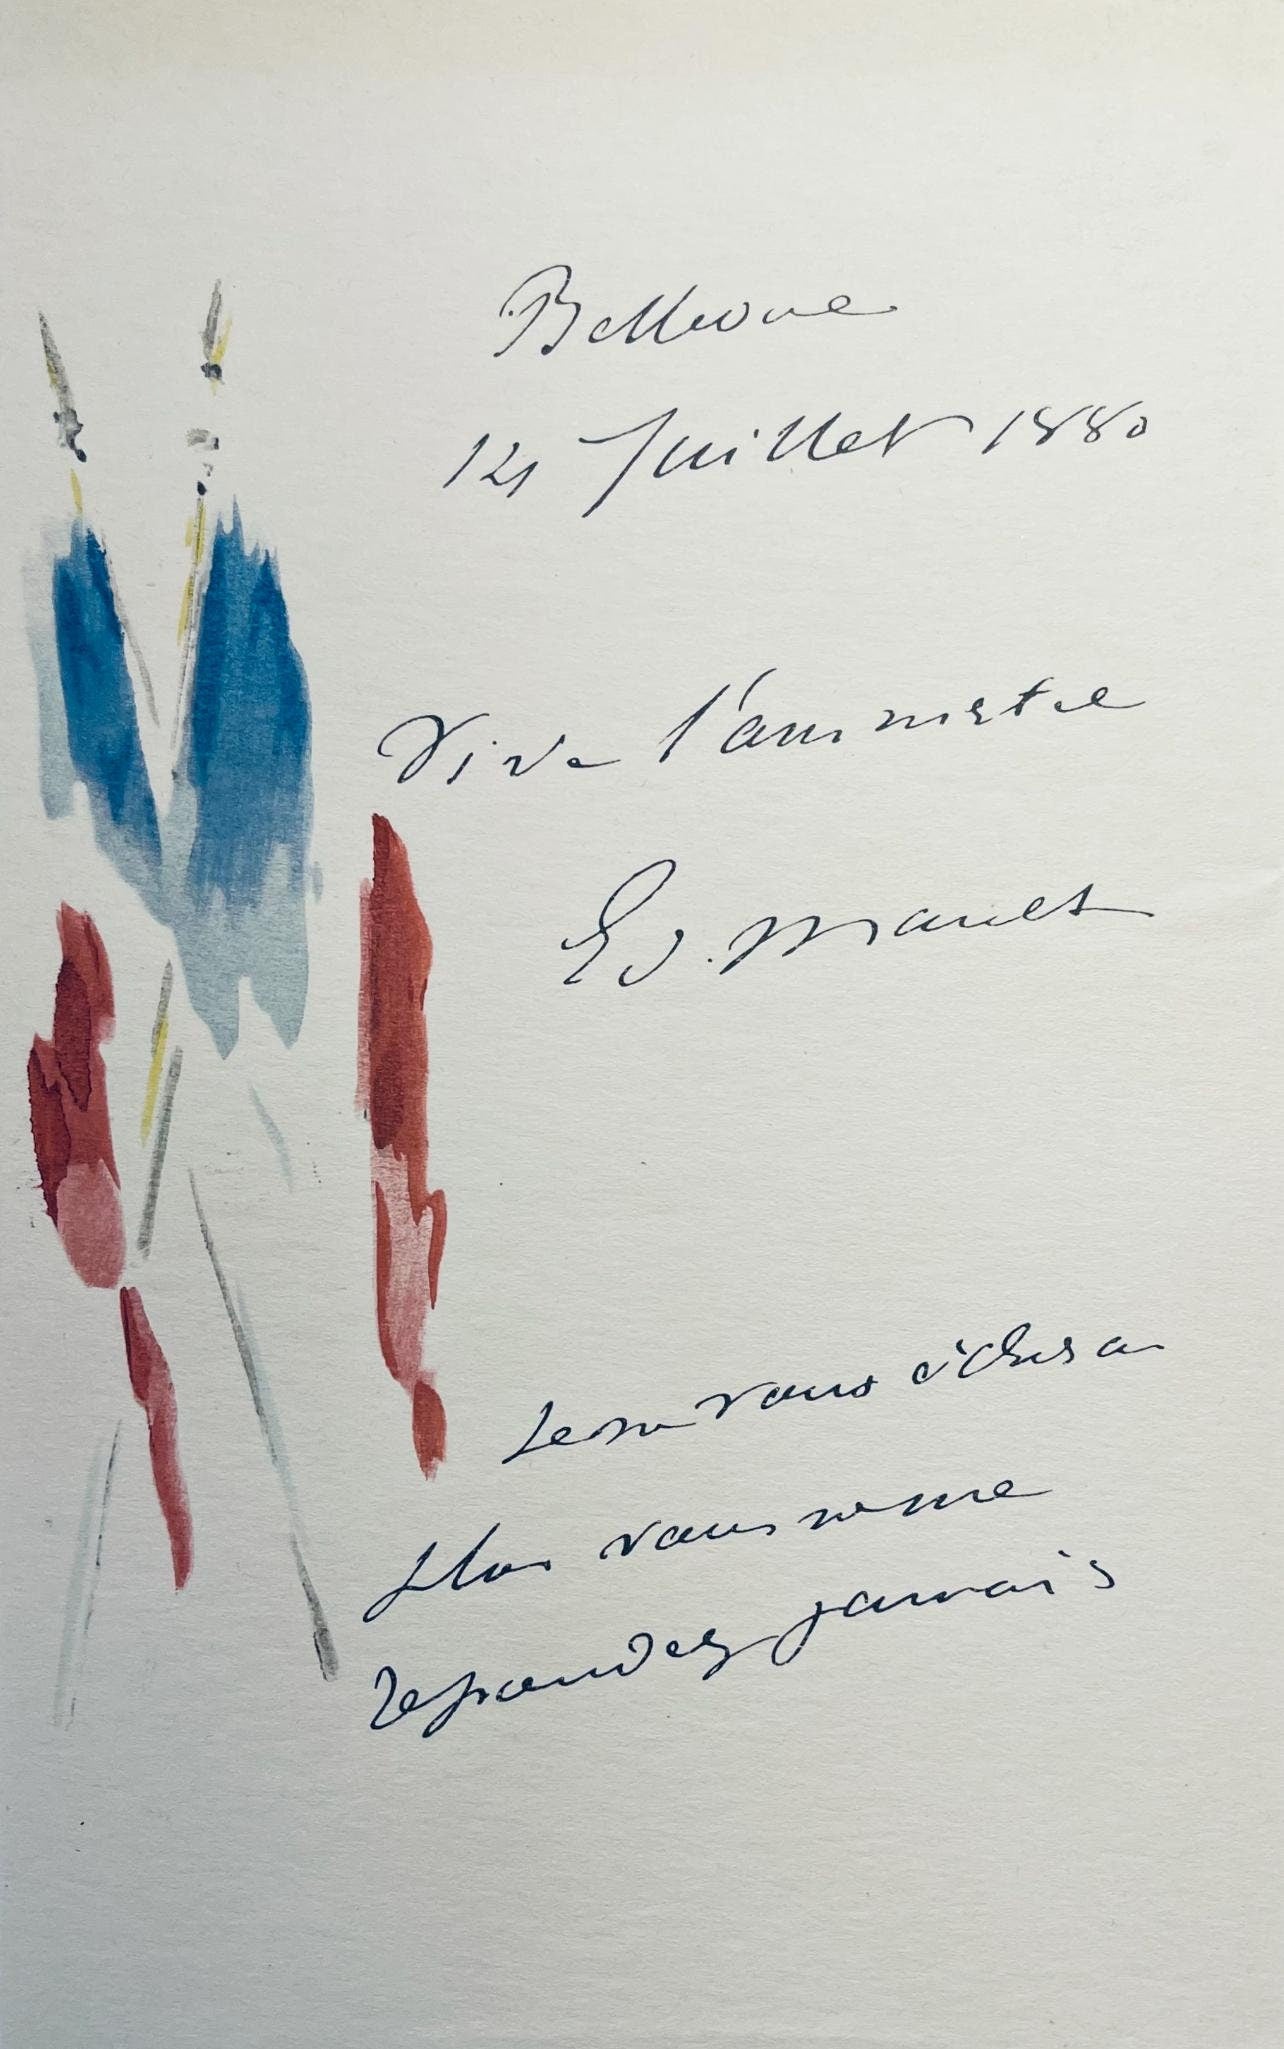 Bellevue
14 Juillet 1880
Vive l'amnistie
Ed. Manet
Je ne vous écherai
plus vous ne me
repondez jamais